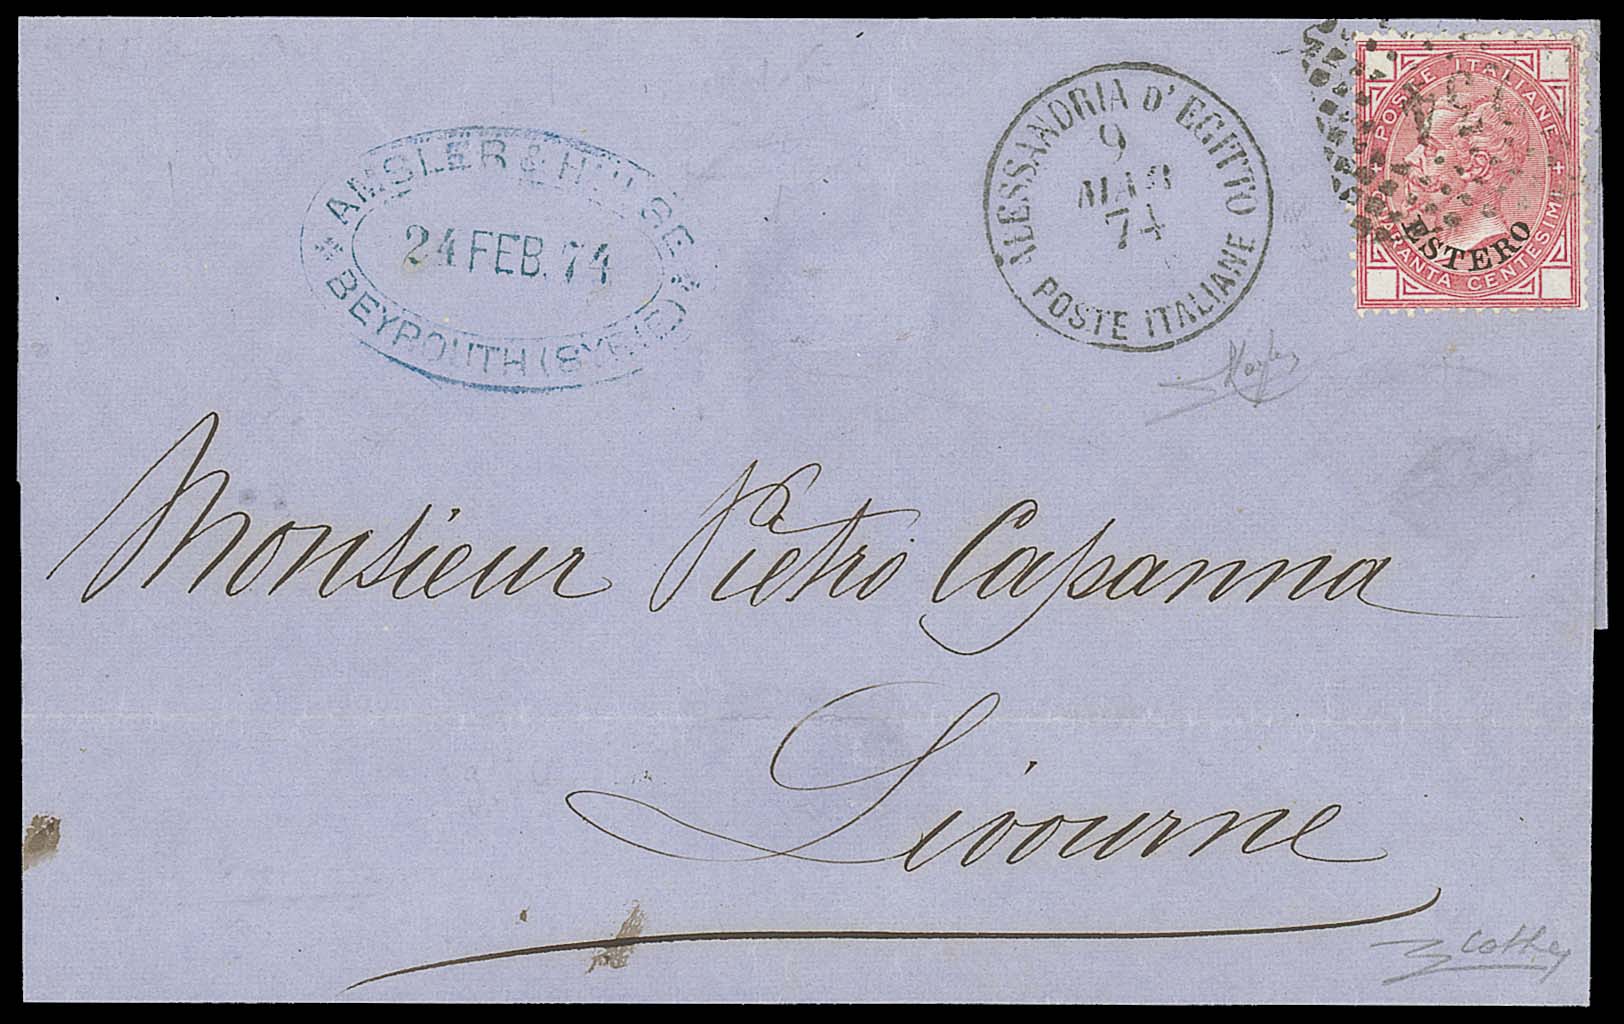 AMSLER & H
24 FEB. 74
BEYROUTH (SYRIE)
ALESSANDRIA D'EGITTO
9
MAR
74
POSTE ITALIANE
POSTE ITALIANE
234
ESTERO
QUARANTA CENTESIMI
Monsieur Pietro Capanna
Livourne